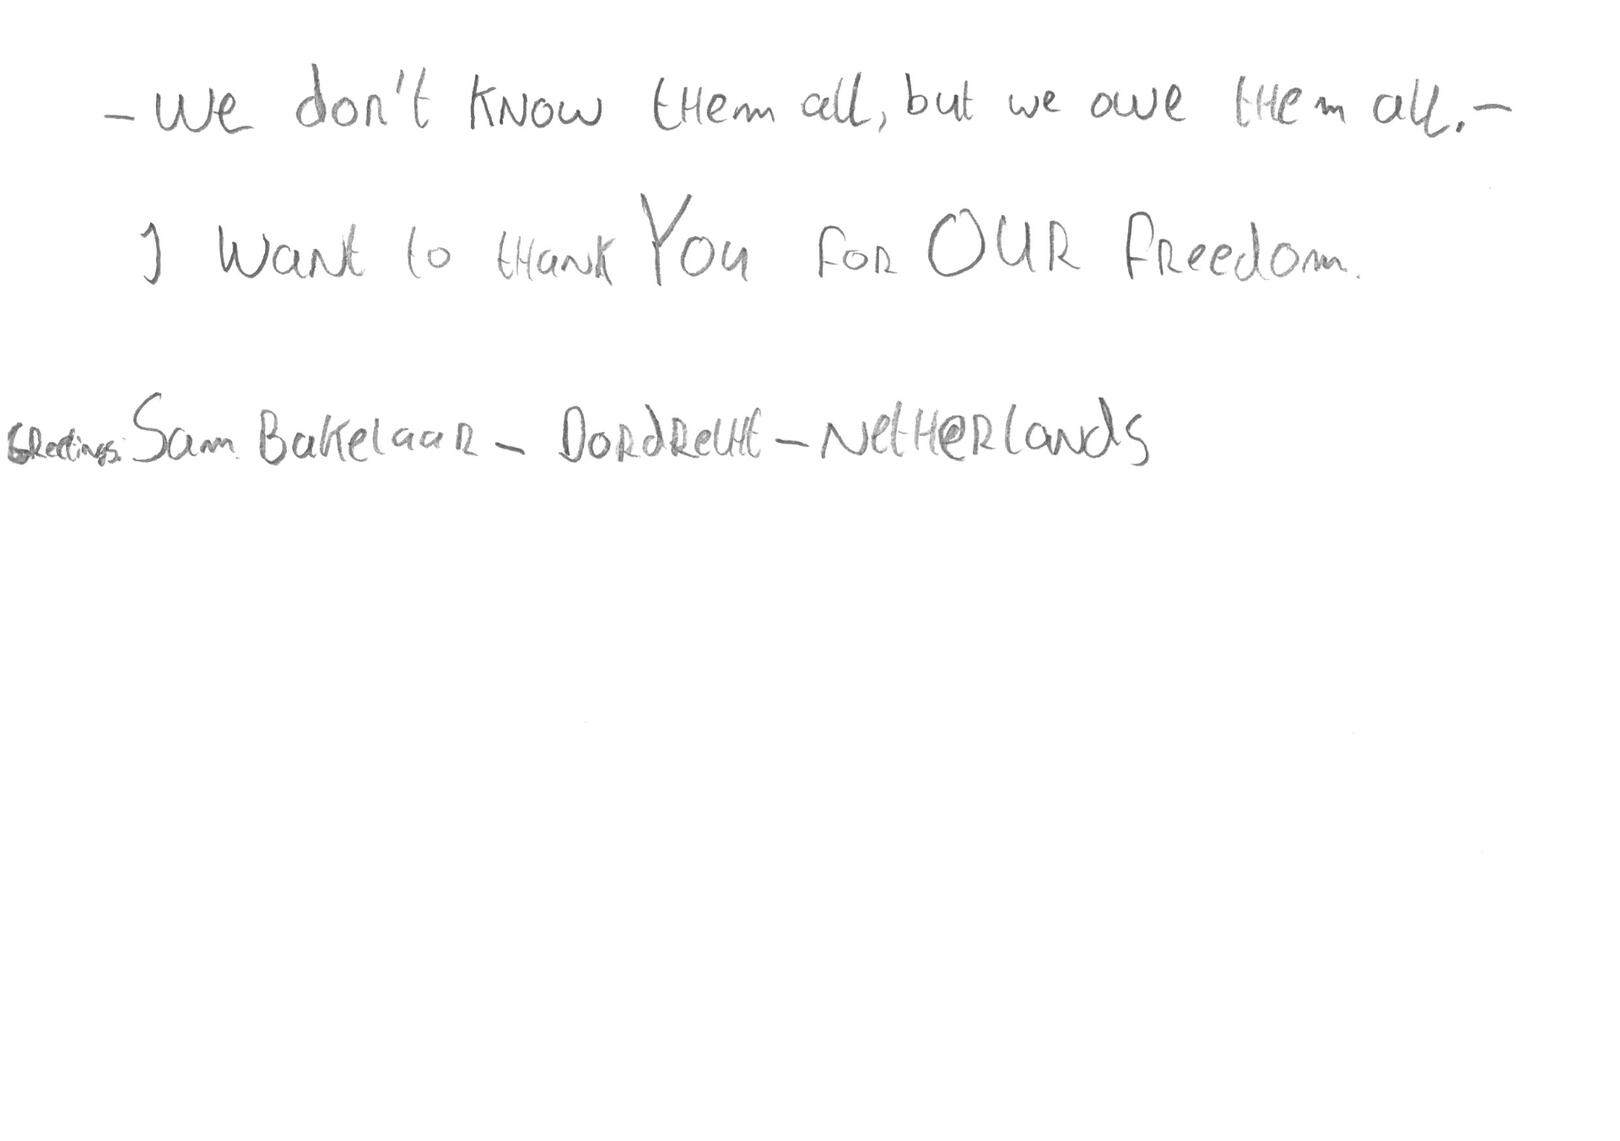 - We don't know them all, but we owe them all. -
I want to thank You for OUR freedom.
Greetings: Sam Bakelaar - Dordrecht - Netherlands